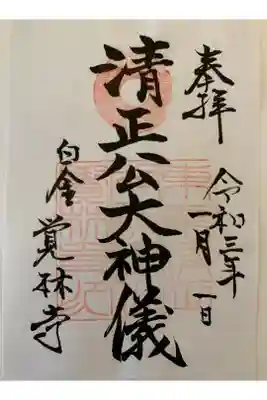 奉拝
令和三年
一月一日
清正公大神儀
白金 覚林寺